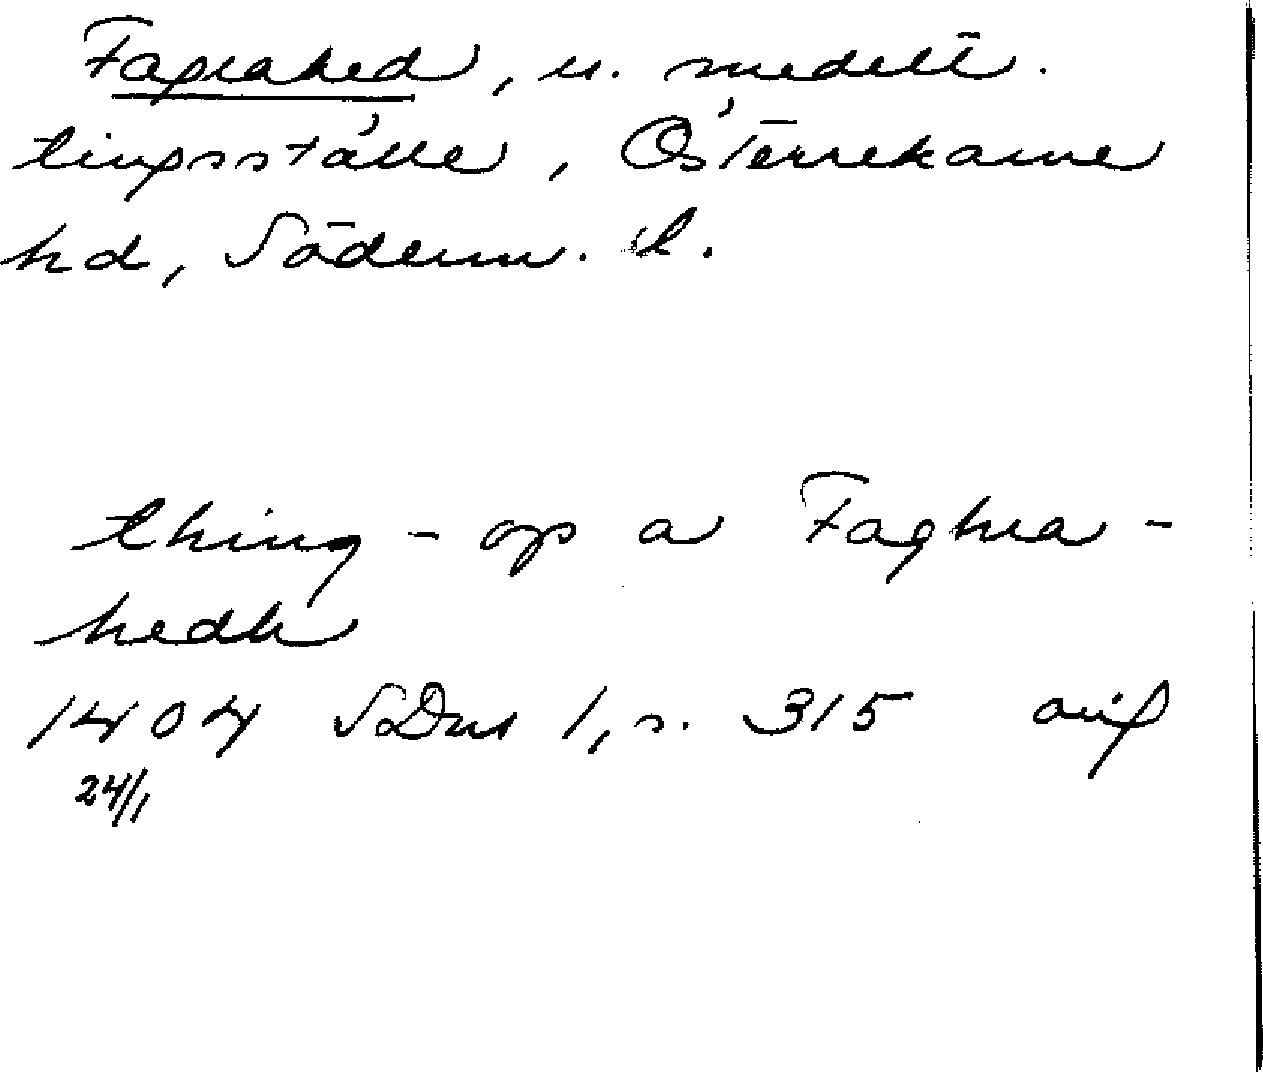 Fagrahed, u. medelt.
tingsställe, Österrekarne
hd, Söderm. l.
thing - op a Faghra-
hedh
1404 SDns 1, s. 315 avif
24/1